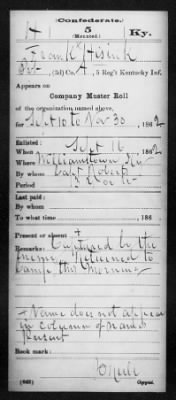 (Confederate.)
H 5 Ky.
(Mounted.)
Frank
Pvt, (3d) Co. A, 5 Reg't Kentucky Inf.
Appears on
Company Muster Roll
of the organization named above,
for Sept 10 to Nov 30, 1862
Enlisted:
When Sept 16, 1862
Where Williamstown Ky
By whom Capt Roberts
Period
Last paid:
By whom
To what time , 186
Present or absent +
Remarks: Captured by the
enemy Returned to
camp this morning
+ Name does not appear
in column of names
present
Book mark:
(642) Copyist.